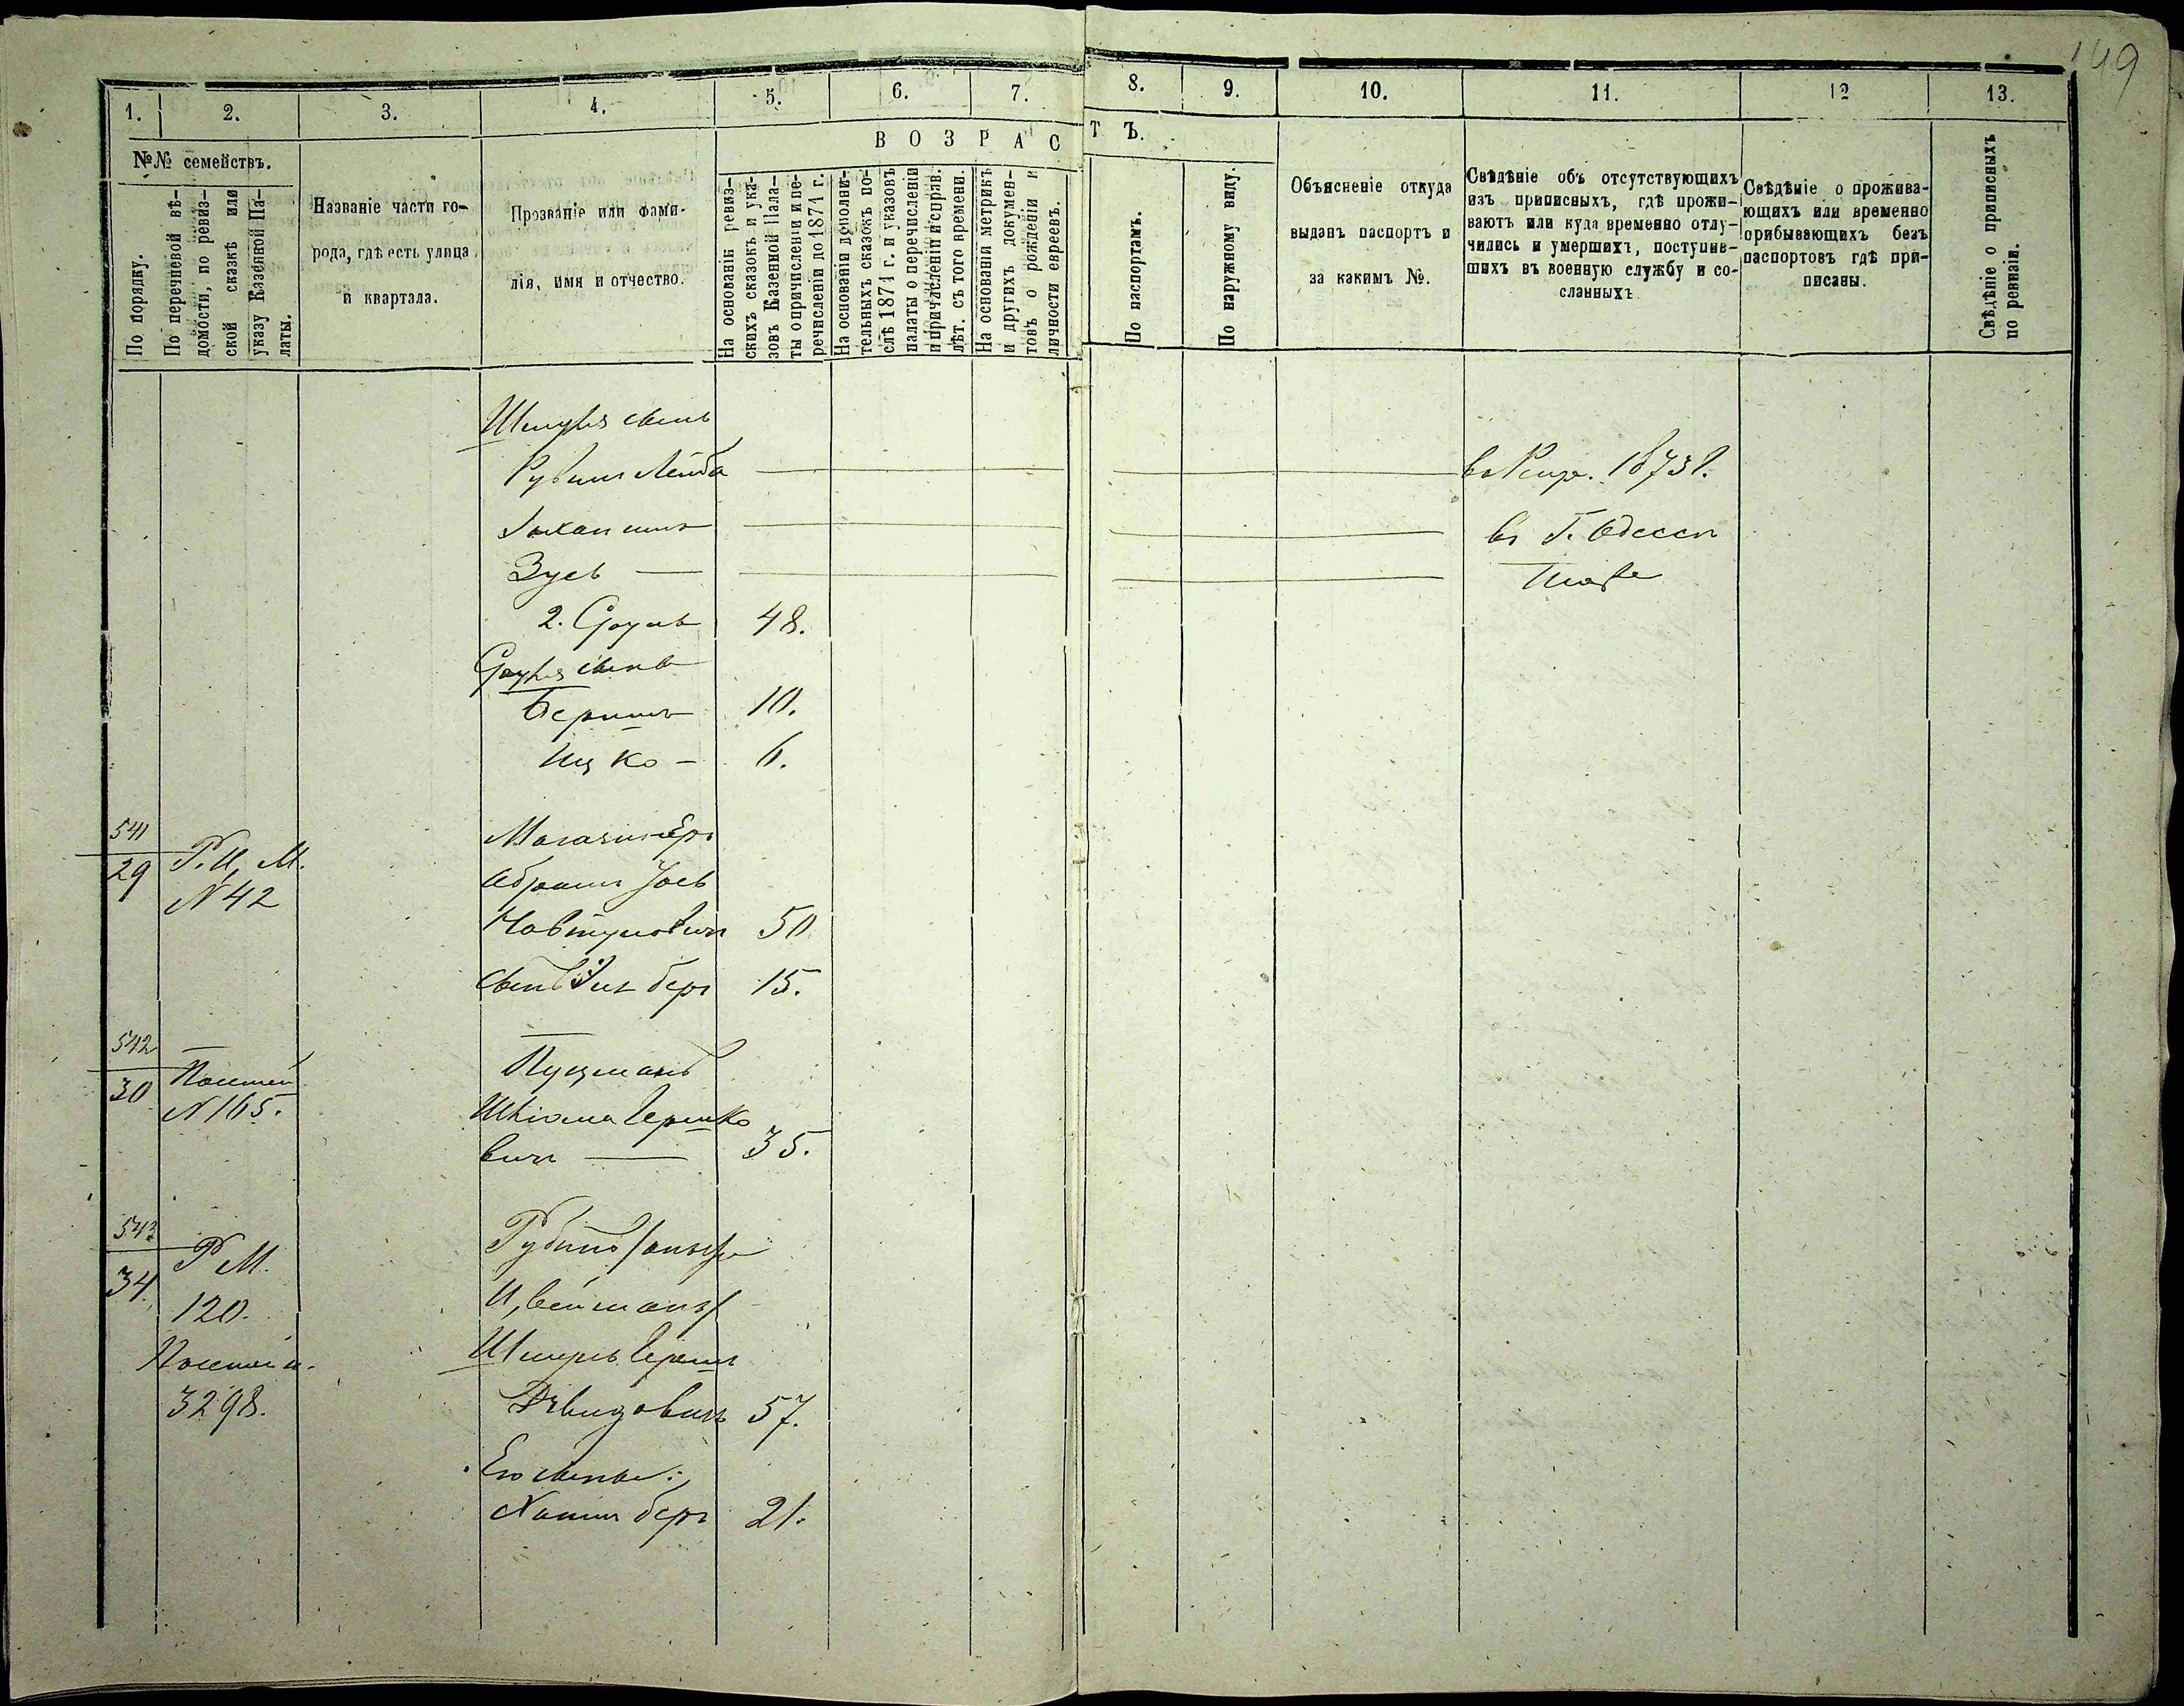 149
1. 2. 3. 4. 5. 6. 7. 8. 9. 10. 11. 12 13.
№№ семействъ.
По порядку.
По перечневой вѣ-
домости, по ревиз-
ской сказкѣ или
указу Казенной Па-
латы.
Названіе части го-
рода, гдѣ есть улица
и квартала.
Прозваніе или фами-
лія, имя и отчество.
ВОЗРАСТЪ.
На основаніи ревиз-
скихъ сказокъ и ука-
зовъ Казенной Пала-
ты о причисленіи и пе-
речисленіи до 1871 г.
На основаніи дополни-
тельныхъ сказокъ по-
слѣ 1871 г. и указовъ
палаты о перечисленіи
и причисленіи исправ.
лѣт. съ того времени.
На основаніи метрикъ
и другихъ докумен-
товъ о рожденіи и
личности евреевъ.
По паспортамъ.
По наружному виду.
Объясненіе откуда
выданъ паспортъ и
за какимъ №.
Свѣдѣніе объ отсутствующихъ
изъ приписныхъ, гдѣ прожи-
ваютъ или куда временно отлу-
чились и умершихъ, поступив-
шихъ въ военную службу и со-
сланныхъ
Свѣдѣніе о прожива-
ющихъ или временно
прибывающихъ безъ
паспортовъ гдѣ при-
писаны.
Свѣдѣніе о приписныхъ
по ревизіи.
сынъ
Рувинъ Лейба 1873 г.
въ Г. Одессѣ
Зусь —
2. Сруль 48.
Сруля сынъ
Беришъ 10.
Ицко — 6.
541
29 Р. И, М.
N 42
Абрамъ Іось
Нафтуловичъ 50
сынъ берг 15.
542
30
N 165.
Пуцманъ
Шлiома Гершко
вичъ — 35.
543
34. Р М.
120.
3298.
Рубинъ
Цвейманъ
Шмерль Гершъ
Давидовичъ 57.
Его сынъ:
берг 21.